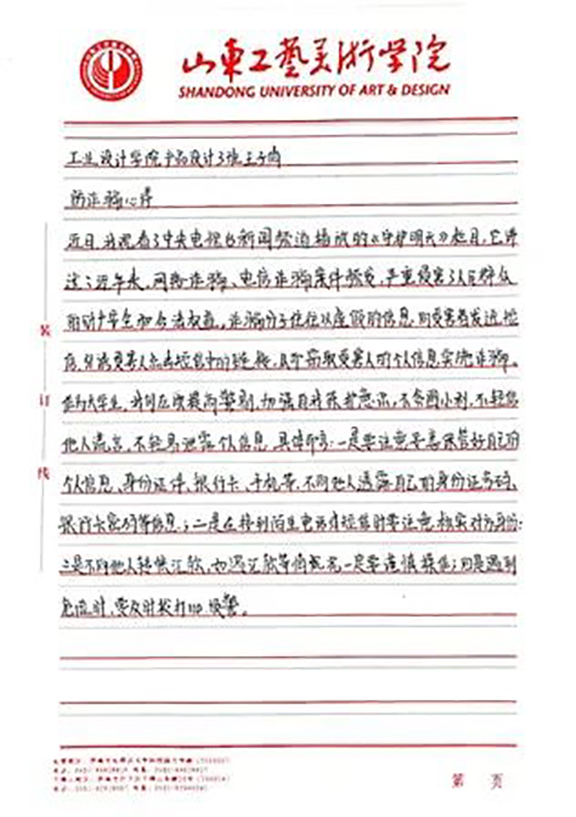 山东工艺美术学院
SHANDONG UNIVERSITY OF ART & DESIGN
工业设计学院产品设计3班王子向
防诈骗心得
近日,我观看了中央电视台新闻频道播放的《守护明天》栏目,它讲
述了近年来,网络诈骗、电信诈骗案件频发,严重侵害了人民群众
的财产安全和合法权益。诈骗分子往往以虚假的信息,向受害者发送短
信,引诱受害人点击短信中的链接,从而窃取受害人的个人信息实施诈骗。
作为大学生,我们应该提高警惕,加强自我保护意识,不贪图小利,不轻信
他人流言,不轻易泄露个人信息,具体所言:一是要注意妥善保管好自己的
个人信息、身份证件、银行卡、手机等,不向他人透露自己的身份证号码、
银行卡密码等信息;二是在接到陌生电话或短信时要注意核实对方身份;
三是不向他人轻信汇款,如遇汇款等情况先一定要谨慎操作;四是遇到
危险时,要及时拨打110报警。
装
订
线
第 页